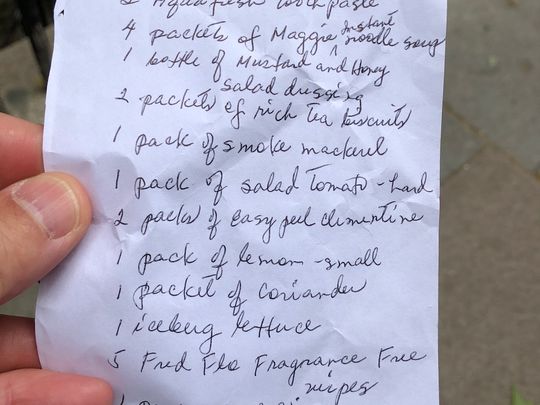 2 Aquafresh toothpaste
4 packets of Maggie instant noodle soup
1 bottle of Mustard and Honey
salad dussing
2 packets of rich tea biscuits
1 pack of smoke mackerel
1 pack of salad Tomato - hard
2 packs of easy peel clementine
1 pack of lemon - small
1 packet of Coriander
1 iceberg lettuce
5 Fred Flo Fragrance Free
wipes
1